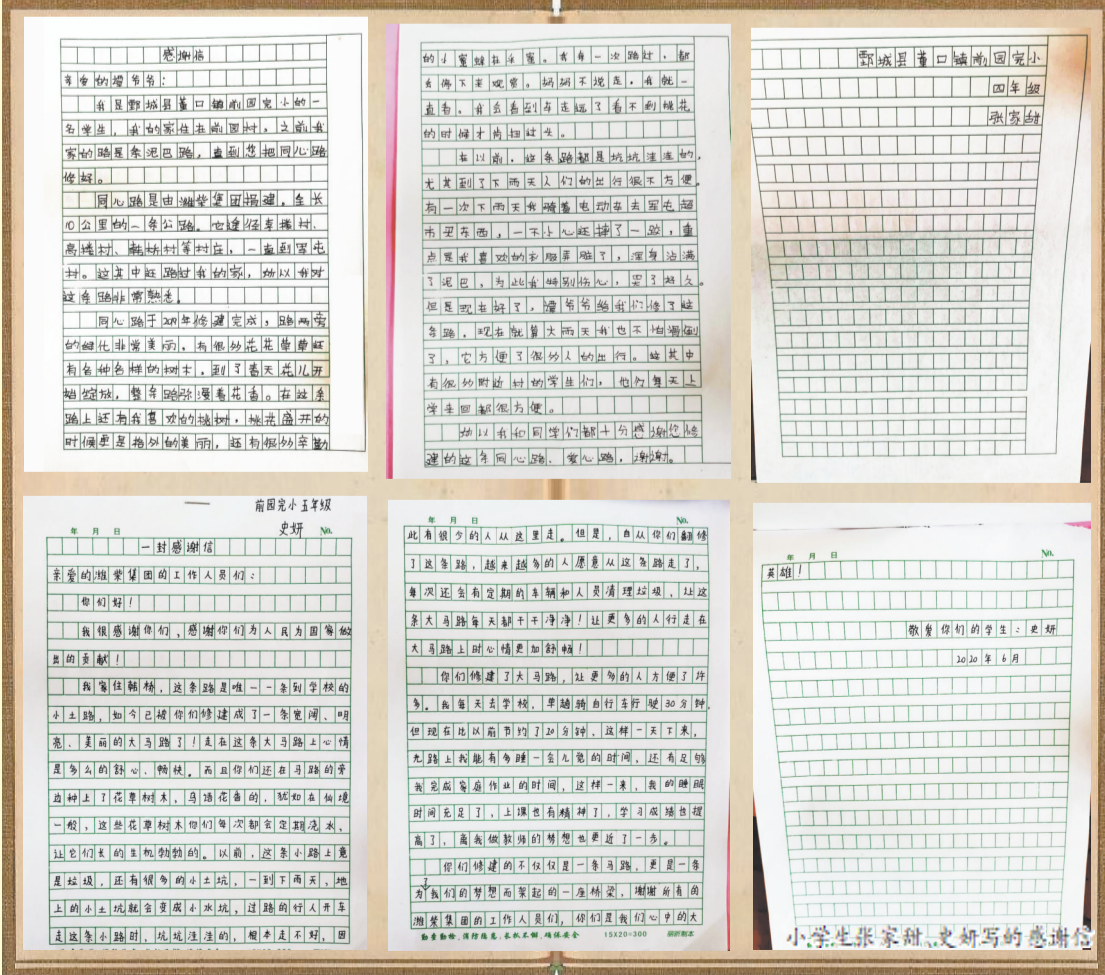 感谢信
亲爱的潭爷爷：
我是鄄城县董口镇前园完小的一
名学生，我的家住在前园村，之前我
家的路是条泥巴路，直到您把同心路
修好。
同心路是由潍柴集团捐建，全长
10公里的一条公路。它途径李楼村、
高楼村、韩桥村等村庄，一直到军屯
村。这其中还路过我的家，所以我对
这条路非常熟悉。
同心路于2019年修建完成，路两旁
的绿化非常美丽，有很多花花草草还
有各种各样的树木，到了春天花儿开
始绽放，整条路弥漫着花香。在这条
路上还有我喜欢的桃树，桃花盛开的
时候更是格外的美丽，还有很多辛勤
的小蜜蜂在采蜜。我每一次路过，都
会停下来观赏。妈妈不说走，我就一
直看。我会看到车走远了看不到桃花
的时候才肯扭过头。
在以前，这条路都是坑坑洼洼的，
尤其到了下雨天人们的出行很不方便。
有一次下雨天我骑着电动车去军屯超
市买东西，一不小心还摔了一跤，重
点是我喜欢的衣服弄脏了，浑身沾满
了泥巴，为此我特别伤心，哭了好久。
但是现在好了，潭爷爷给我们修了这
条路，现在就算大雨天我也不怕滑倒
了，它方便了很多人的出行。这其中
有很多附近村的学生们，他们每天上
学来回都很方便。
所以我和同学们都十分感谢您修
建的这条同心路、爱心路，谢谢。
鄄城县董口镇前园完小
四年级
张家甜
前园完小五年级
史妍
年 月 日 No.
一封感谢信
亲爱的潍柴集团的工作人员们：
你们好！
我很感谢你们，感谢你们为人民为国家做
出的贡献！
我家住韩桥，这条路是唯一一条到学校的
小土路，如今已被你们修建成了一条宽阔、明
亮、美丽的大马路了！走在这条大马路上心情
是多么的舒心、畅快。而且你们还在马路的旁
边种上了花草树木，鸟语花香的，犹如在仙境
一般，这些花草树木你们每次都会定期浇水，
让它们长的生机勃勃的。以前，这条小路上竟
是垃圾，还有很多的小土坑，一到下雨天，地
上的小土坑就会变成小水坑，过路的行人开车
走这条小路时，坑坑洼洼的，根本走不好，因
年 月 日 No.
此有很少的人从这里走。但是，自从你们翻修
了这条路，越来越多的人愿意从这条路走了，
每次还会有定期的车辆和人员清理垃圾，让这
条大马路每天都干干净净！让更多的人行走在
大马路上时心情更加舒畅！
你们修建了大马路，让更多的人方便了许
多。我每天去学校，单趟骑自行车行驶30分钟，
但现在比以前节约了20分钟、这样一天下来，
光路上我能有多睡一会儿觉的时间，还有足够
我完成家庭作业的时间，这样一来，我的睡眠
时间充足了，上课也有精神了，学习成绩也提
高了，离我做教师的梦想也更近了一步。
你们修建的不仅仅是一条马路，更是一条
为了我们的梦想而架起的一座桥梁，谢谢所有的
潍柴集团的工作人员们，你们是我们心中的大
15X20=300
年 月 日 No.
英雄！
敬爱你们的学生：史妍
2020年6月
小学生张家甜、史妍写的感谢信